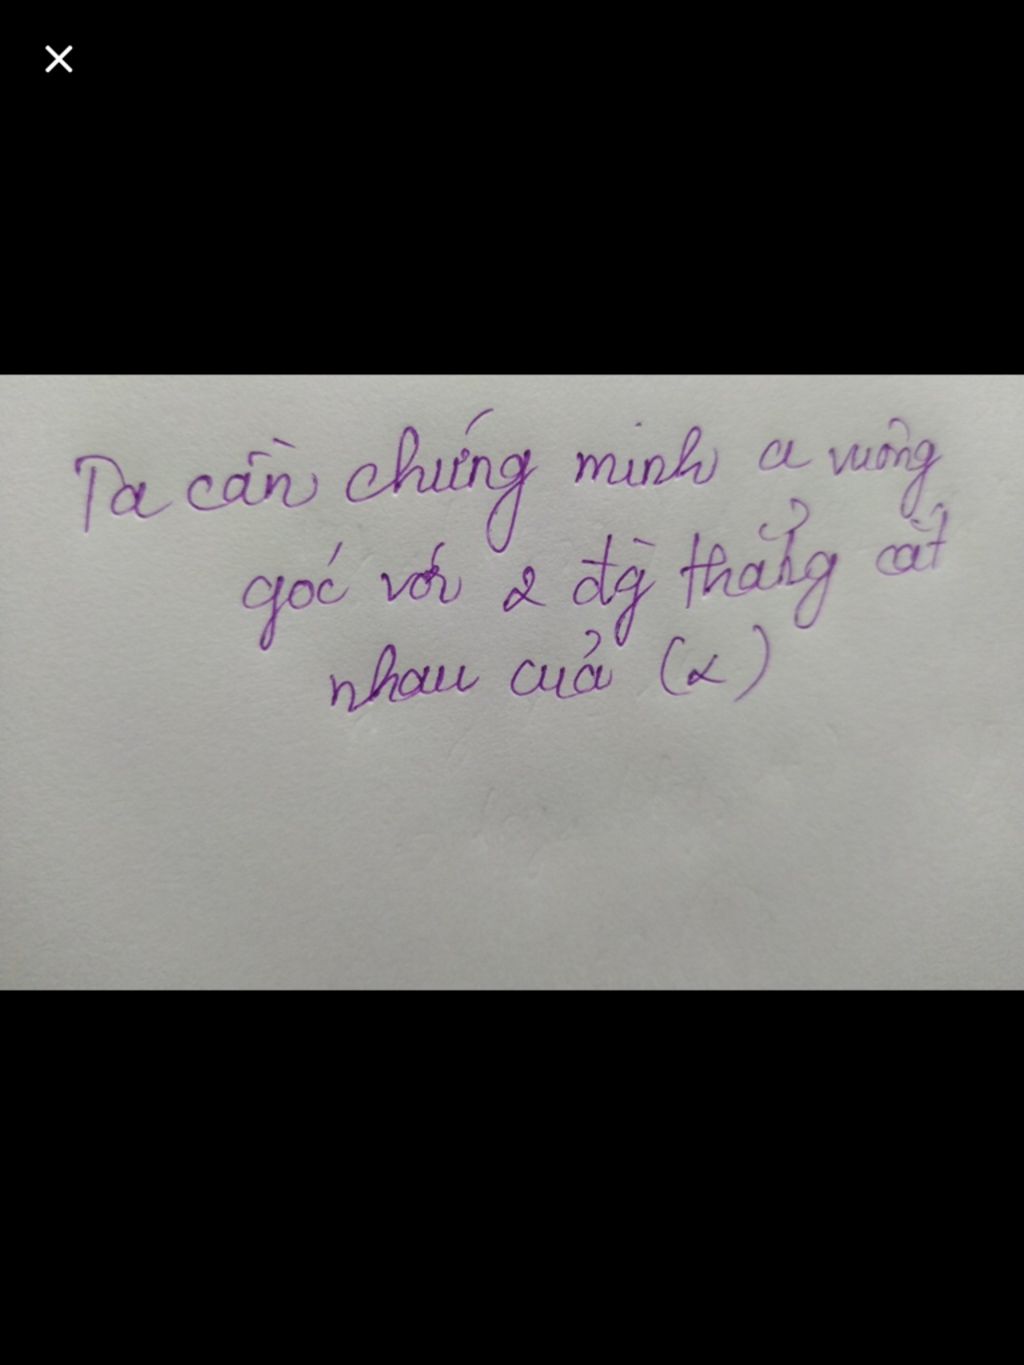 Ta cần chứng minh a vuông
góc với 2 đg̀ thẳng cắt
nhau của (α)